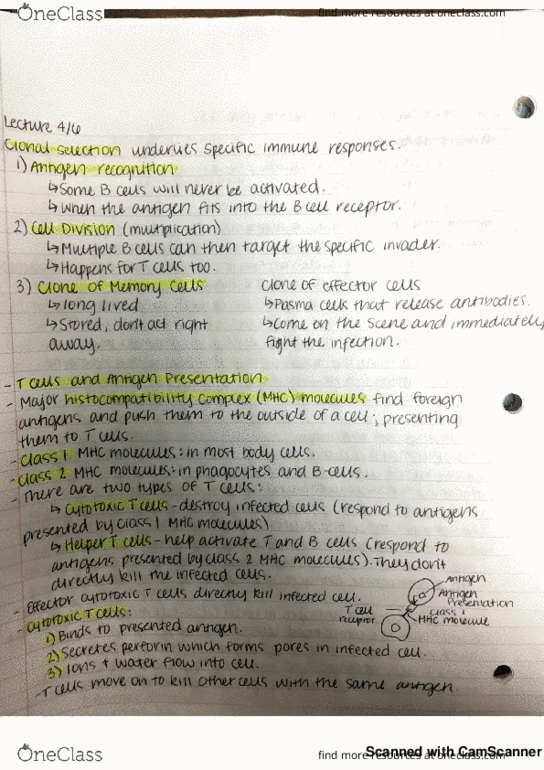 OneClass
find more resources at oneclass.com
Lecture 4/6
Clonal selection underlies specific immune responses.
1) Antigen recognition
↳ Some B cells will never be activated.
↳ When the antigen fits into the B cell receptor.
2) Cell Division (multiplication)
↳ Multiple B cells can then target the specific invader.
↳ Happens for T cells too.
3) Clone of Memory Cells
↳ long lived
↳ Stored, don't act right
away.
clone of effector cells
↳ Plasma cells that release antibodies.
↳ Come on the scene and immediately
fight the infection.
- T cells and Antigen Presentation
- Major histocompatibility complex (MHC) molecules find foreign
antigens and push them to the outside of a cell; presenting
them to T cells.
- Class 1 MHC molecules: in most body cells.
- Class 2 MHC molecules: in phagocytes and B-cells.
- There are two types of T cells:
↳ Cytotoxic T cells - destroy infected cells (respond to antigens
presented by class 1 MHC molecules)
↳ Helper T cells - help activate T and B cells (respond to
antigens presented by class 2 MHC molecules). They don't
directly kill the infected cells.
- Effector cytotoxic T cells directly kill infected cell.
- Cytotoxic T cells:
1) Binds to presented antigen.
2) Secretes perforin which forms pores in infected cell.
3) Ions + water flow into cell.
- T cells move on to kill other cells with the same antigen.
Antigen
Antigen
Presentation
class 1
MHC molecule
T cell
receptor
OneClass
find more resources at oneclass.com
Scanned with CamScanner